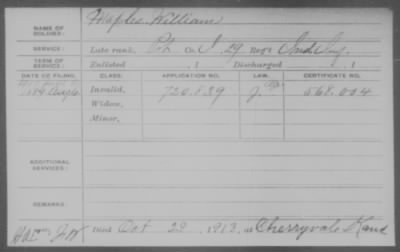 NAME OF SOLDIER: Maples, William
SERVICE: Late rank, Pvt Co. I, 29 Reg't Ind. Inf.
TERM OF SERVICE: Enlisted , 1 Discharged , 1
DATE OF FILING. CLASS. APPLICATION NO. LAW. CERTIFICATE NO.
Invalid, 720.839 568.004
Widow,
Minor,
ADDITIONAL SERVICES:
REMARKS:
Died Oct 23, 1913, at Cherryvale Kans